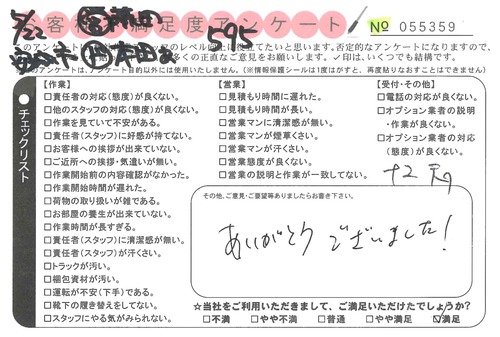 お客様満足度アンケート
№ 055359
5/22
595
このアンケートに
レベル向上に役立てたいと思います。否定的なアンケートになりますので、
多くの正直なご意見をお願いします。✓印は、いくつでも結構です。
アンケート目的以外には使用いたしません。(※情報保護シールは1度がすと、再度貼りなおすことはできません)
●チェックリスト
【作業】
□責任者の対応(態度)が良くない。
□他のスタッフの対応(態度)が良くない。
□作業を見ていて不安がある。
□責任者(スタッフ)に好感が持てない。
□お客様への挨拶が出来ていない。
□ご近所への挨拶・気遣いが無い。
□作業開始前の内容確認がなかった。
□作業開始時間が遅れた。
□荷物の取り扱いが雑である。
□お部屋の養生が出来ていない。
□作業時間が長すぎる。
□責任者(スタッフ)に清潔感が無い。
□責任者(スタッフ)が汗くさい。
□トラックが汚い。
□梱包資材が汚い。
□運転が不安(下手)である。
□靴下の履き替えをしてない。
□スタッフにやる気がみられない。
【営業】
□見積もり時間に遅れた。
□見積もり時間が長い。
□営業マンに清潔感が無い。
□営業マンが煙草くさい。
□営業マンが汗くさい。
□営業態度が良くない。
□営業の説明と作業が一致してない。
【受付・その他】
□電話の対応が良くない。
□オプション業者の説明
・作業が良くない。
□オプション業者の対応
(態度)が良くない。
その他、ご意見・ご要望等ありましたらお書き下さい。
ありがとうございました!
☆当社をご利用いただきまして、ご満足いただけたでしょうか?
□不満 □やや不満 □普通 □やや満足 ☑満足